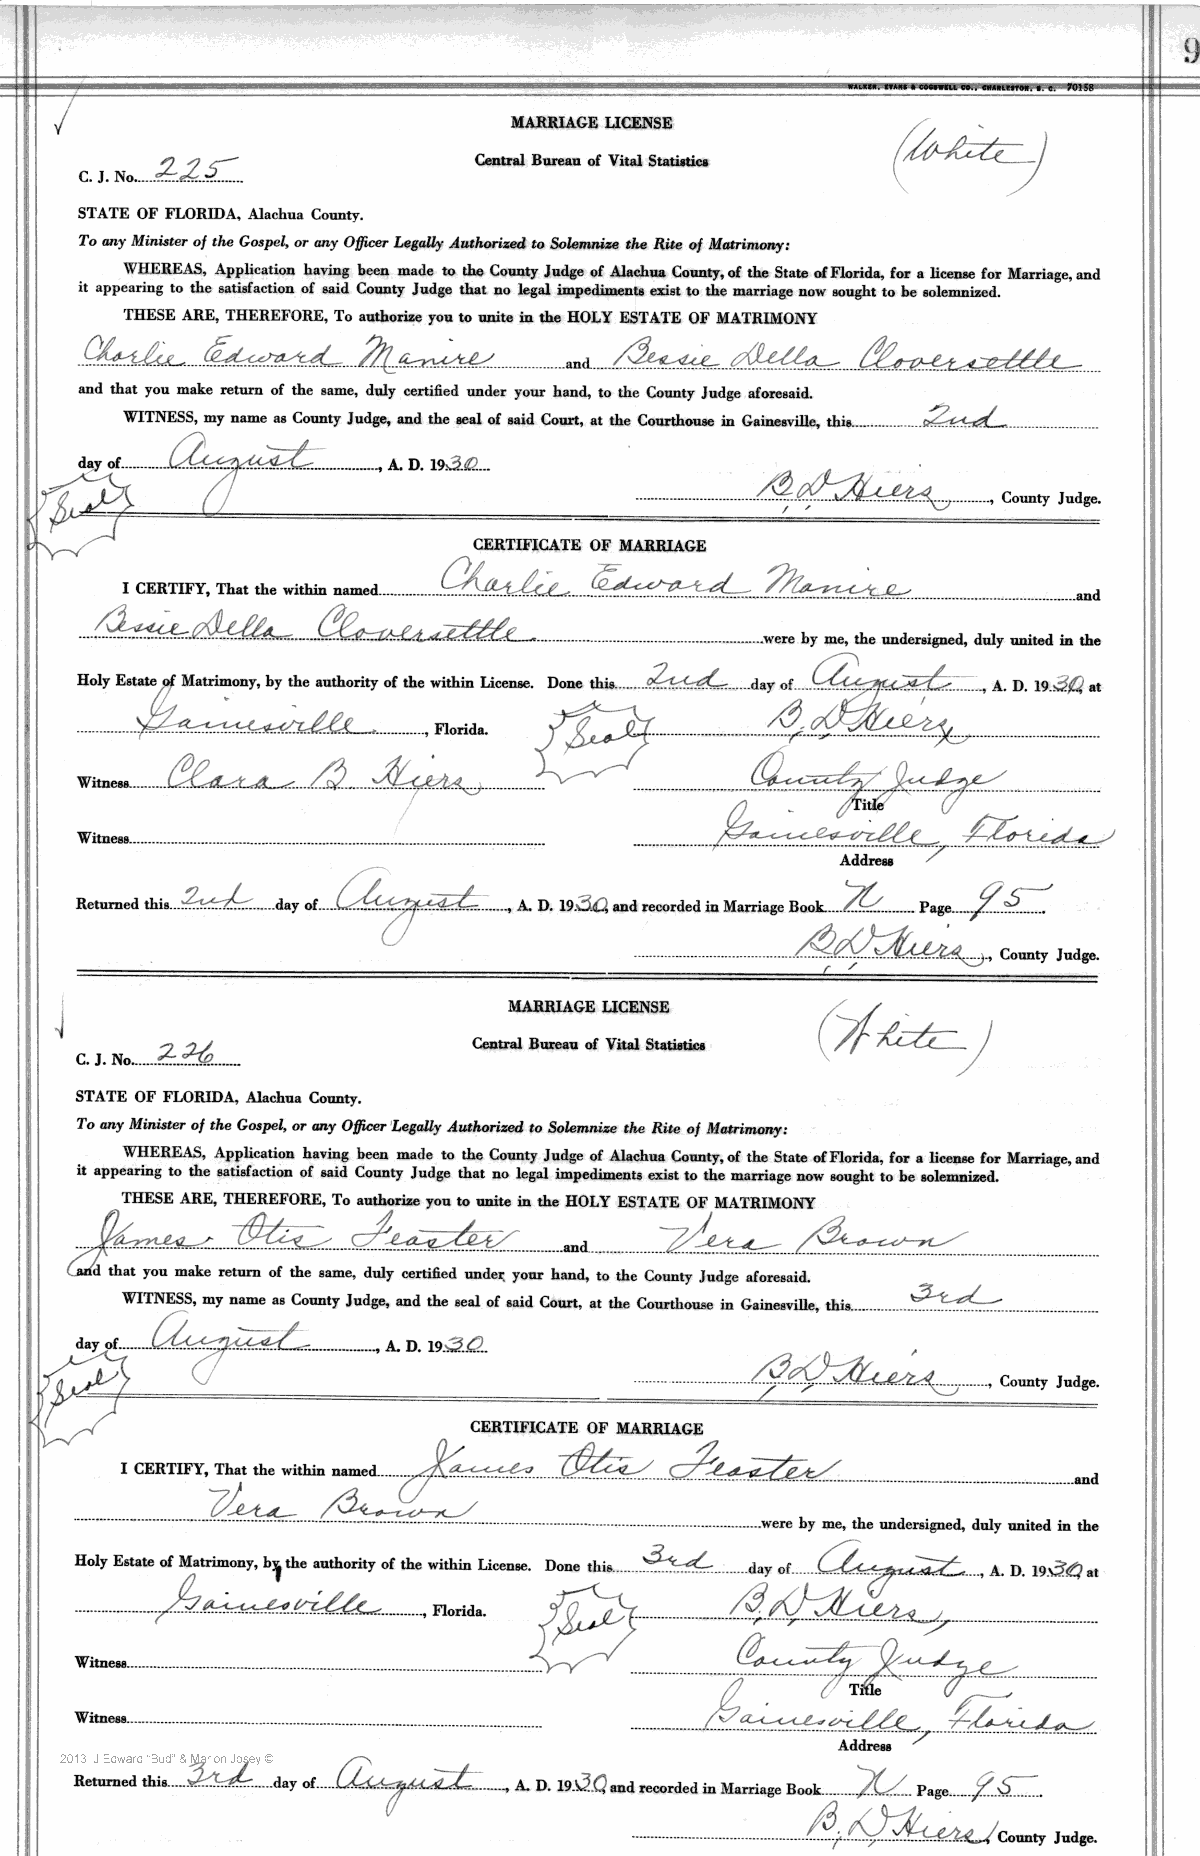 9
WALKER, EVANS & COGSWELL CO., CHARLESTON, S. C. 70158
MARRIAGE LICENSE
(White)
Central Bureau of Vital Statistics
C. J. No. 225
STATE OF FLORIDA, Alachua County.
To any Minister of the Gospel, or any Officer Legally Authorized to Solemnize the Rite of Matrimony:
WHEREAS, Application having been made to the County Judge of Alachua County, of the State of Florida, for a license for Marriage, and
it appearing to the satisfaction of said County Judge that no legal impediments exist to the marriage now sought to be solemnized.
THESE ARE, THEREFORE, To authorize you to unite in the HOLY ESTATE OF MATRIMONY
Charlie Edward Manire and Bessie Della Cloversettle
and that you make return of the same, duly certified under your hand, to the County Judge aforesaid.
WITNESS, my name as County Judge, and the seal of said Court, at the Courthouse in Gainesville, this 2nd
day of August, A. D. 1930
Seal
B, D, Hiers, County Judge.
CERTIFICATE OF MARRIAGE
I CERTIFY, That the within named Charlie Edward Manire and
Bessie Della Cloversettle were by me, the undersigned, duly united in the
Holy Estate of Matrimony, by the authority of the within License. Done this 2nd day of August, A. D. 1930, at
Gainesville, Florida. Seal B, D, Hiers,
Witness Clara B. Hiers County Judge
Title
Witness Gainesville, Florida
Address
Returned this 2nd day of August, A. D. 1930, and recorded in Marriage Book N Page 95.
B, D, Hiers, County Judge.
MARRIAGE LICENSE
(White)
Central Bureau of Vital Statistics
C. J. No. 226
STATE OF FLORIDA, Alachua County.
To any Minister of the Gospel, or any Officer Legally Authorized to Solemnize the Rite of Matrimony:
WHEREAS, Application having been made to the County Judge of Alachua County, of the State of Florida, for a license for Marriage, and
it appearing to the satisfaction of said County Judge that no legal impediments exist to the marriage now sought to be solemnized.
THESE ARE, THEREFORE, To authorize you to unite in the HOLY ESTATE OF MATRIMONY
James Otis Feaster and Vera Brown
and that you make return of the same, duly certified under your hand, to the County Judge aforesaid.
WITNESS, my name as County Judge, and the seal of said Court, at the Courthouse in Gainesville, this 3rd
day of August, A. D. 1930
Seal
B, D, Hiers, County Judge.
CERTIFICATE OF MARRIAGE
I CERTIFY, That the within named James Otis Feaster and
Vera Brown were by me, the undersigned, duly united in the
Holy Estate of Matrimony, by the authority of the within License. Done this 3rd day of August, A. D. 1930, at
Gainesville, Florida. Seal B, D, Hiers,
Witness County Judge
Title
Witness Gainesville, Florida
Address
2013 J Edward "Bud" & Marion Josey ©
Returned this 3rd day of August, A. D. 1930, and recorded in Marriage Book N Page 95.
B, D, Hiers, County Judge.